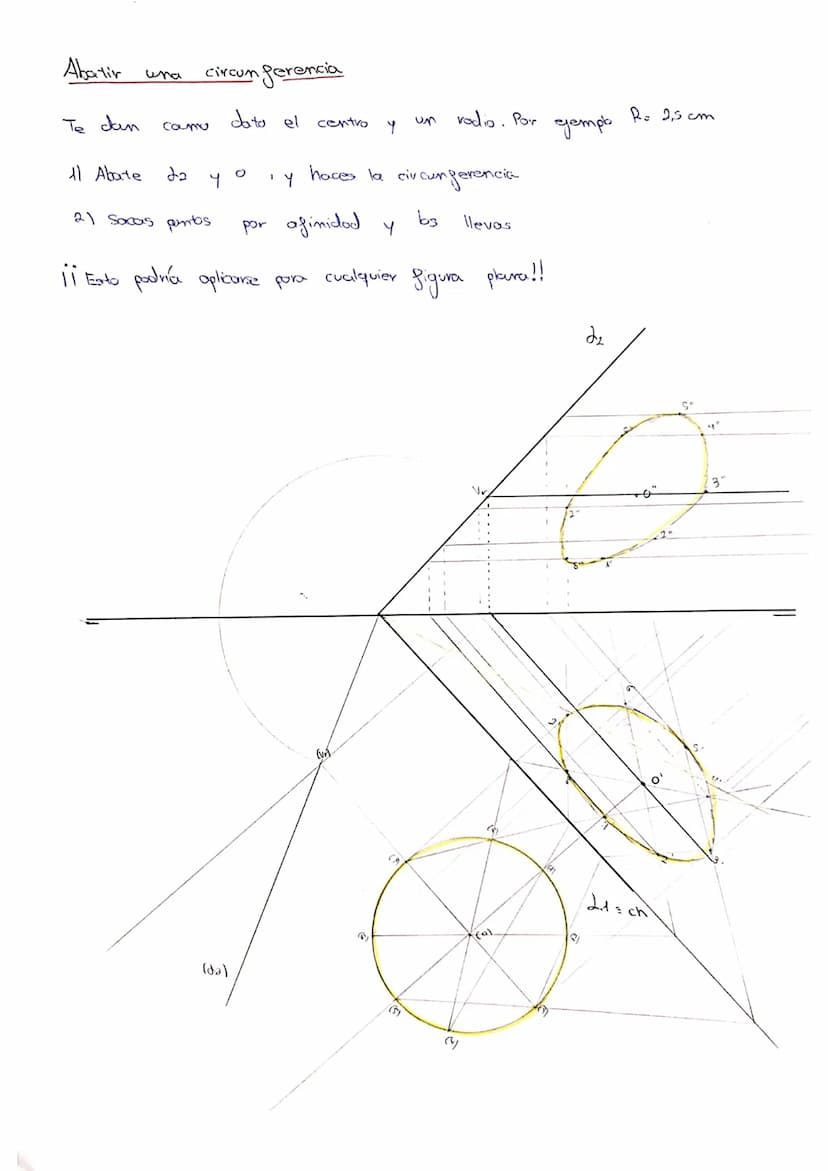 Abatir una circunferencia
Te dan como dato el centro y un radio. Por ejemplo R= 2,5 cm
1) Abate d2 y O , y haces la circunferencia
2) Sacas puntos por afinidad y los llevas
¡¡ Esto podría aplicarse para cualquier figura plana!!
d2
5"
4"
Vr
O"
3"
2"
(Vr)
5'
O'
3'
(O)
d1 = ch
(d2)